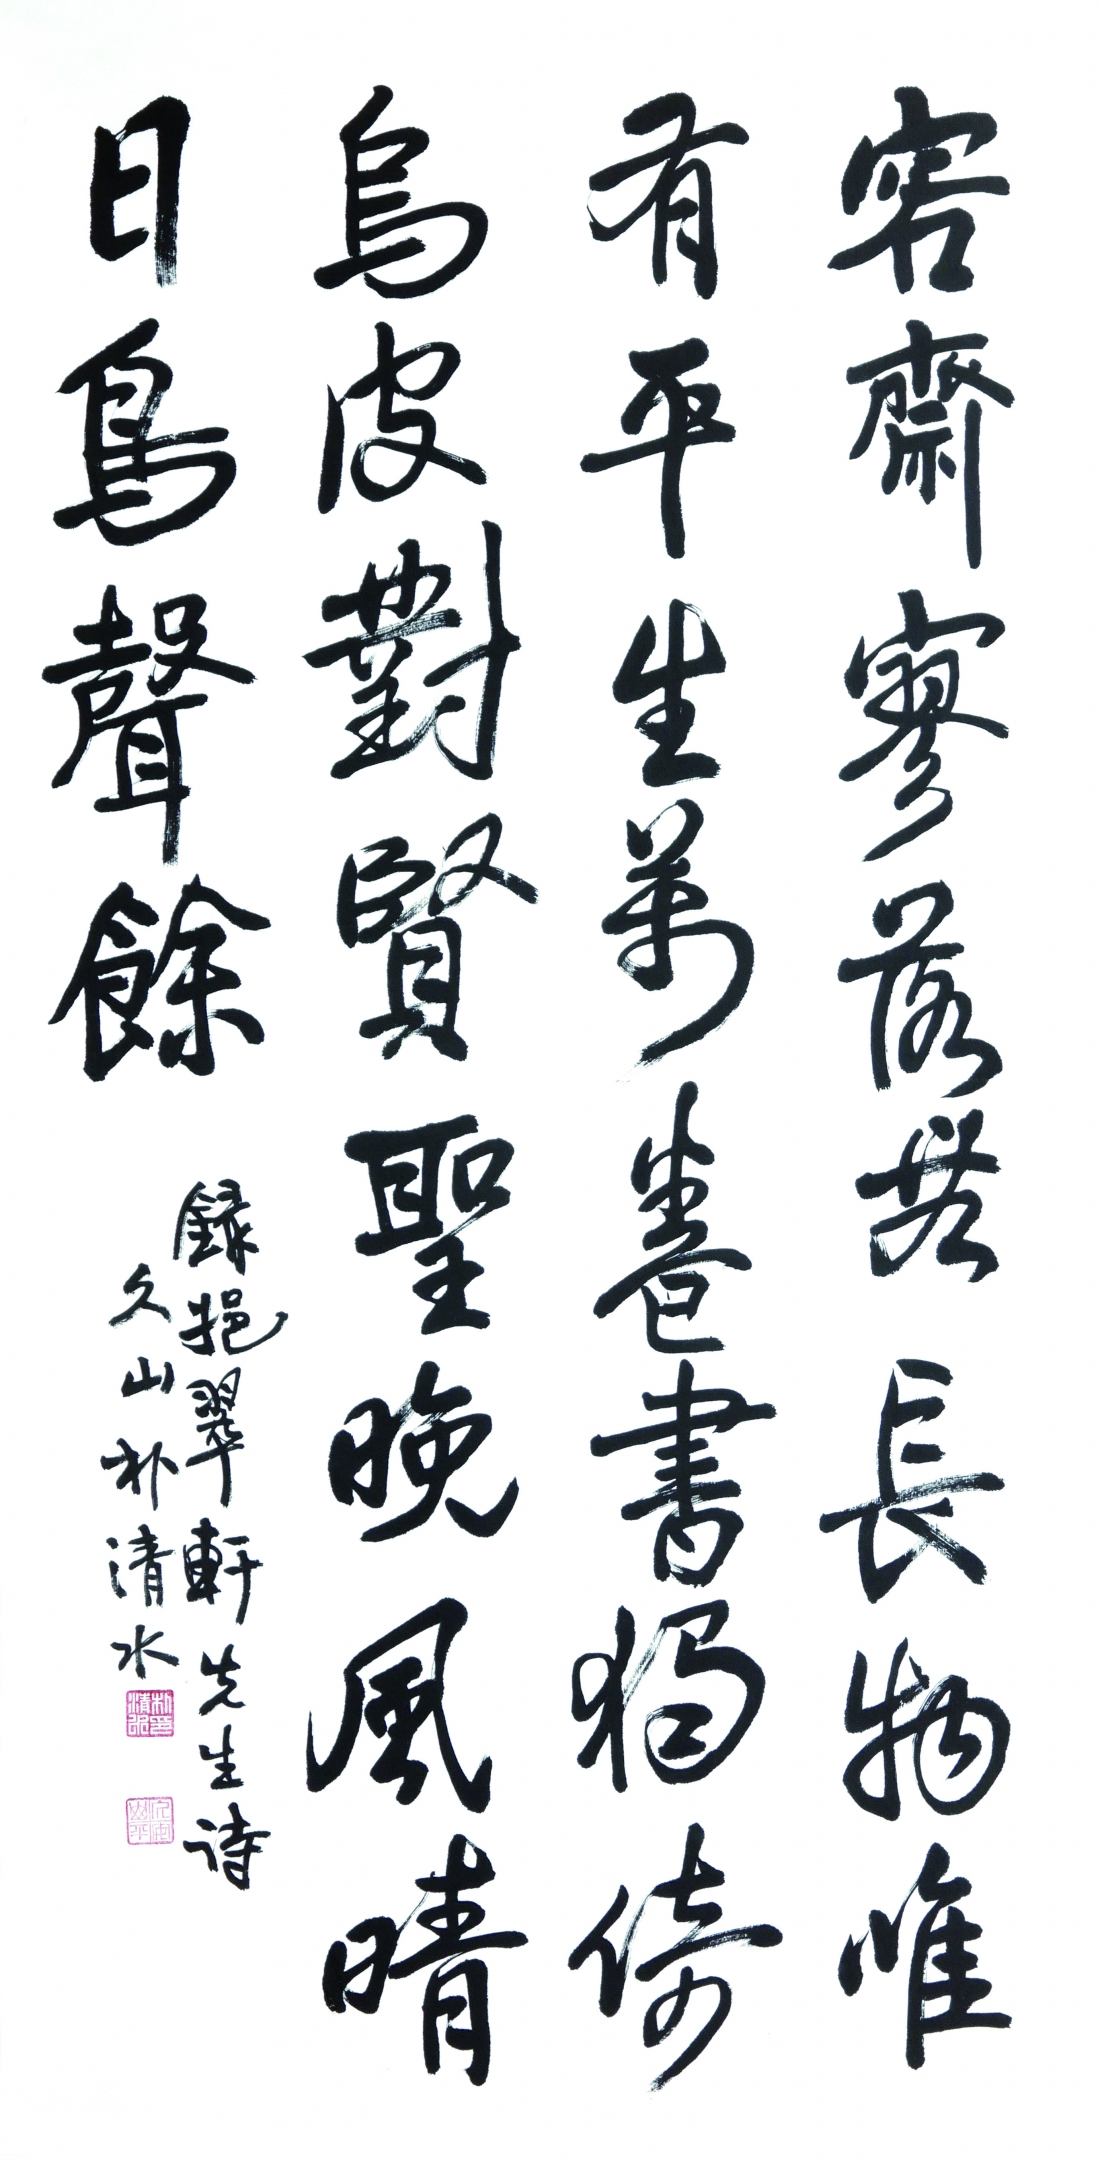 容齋寥落無長物唯
有平生萬卷書獨倚
烏皮對賢聖晚風晴
日鳥聲餘
録挹翠軒先生詩
久山朴清水